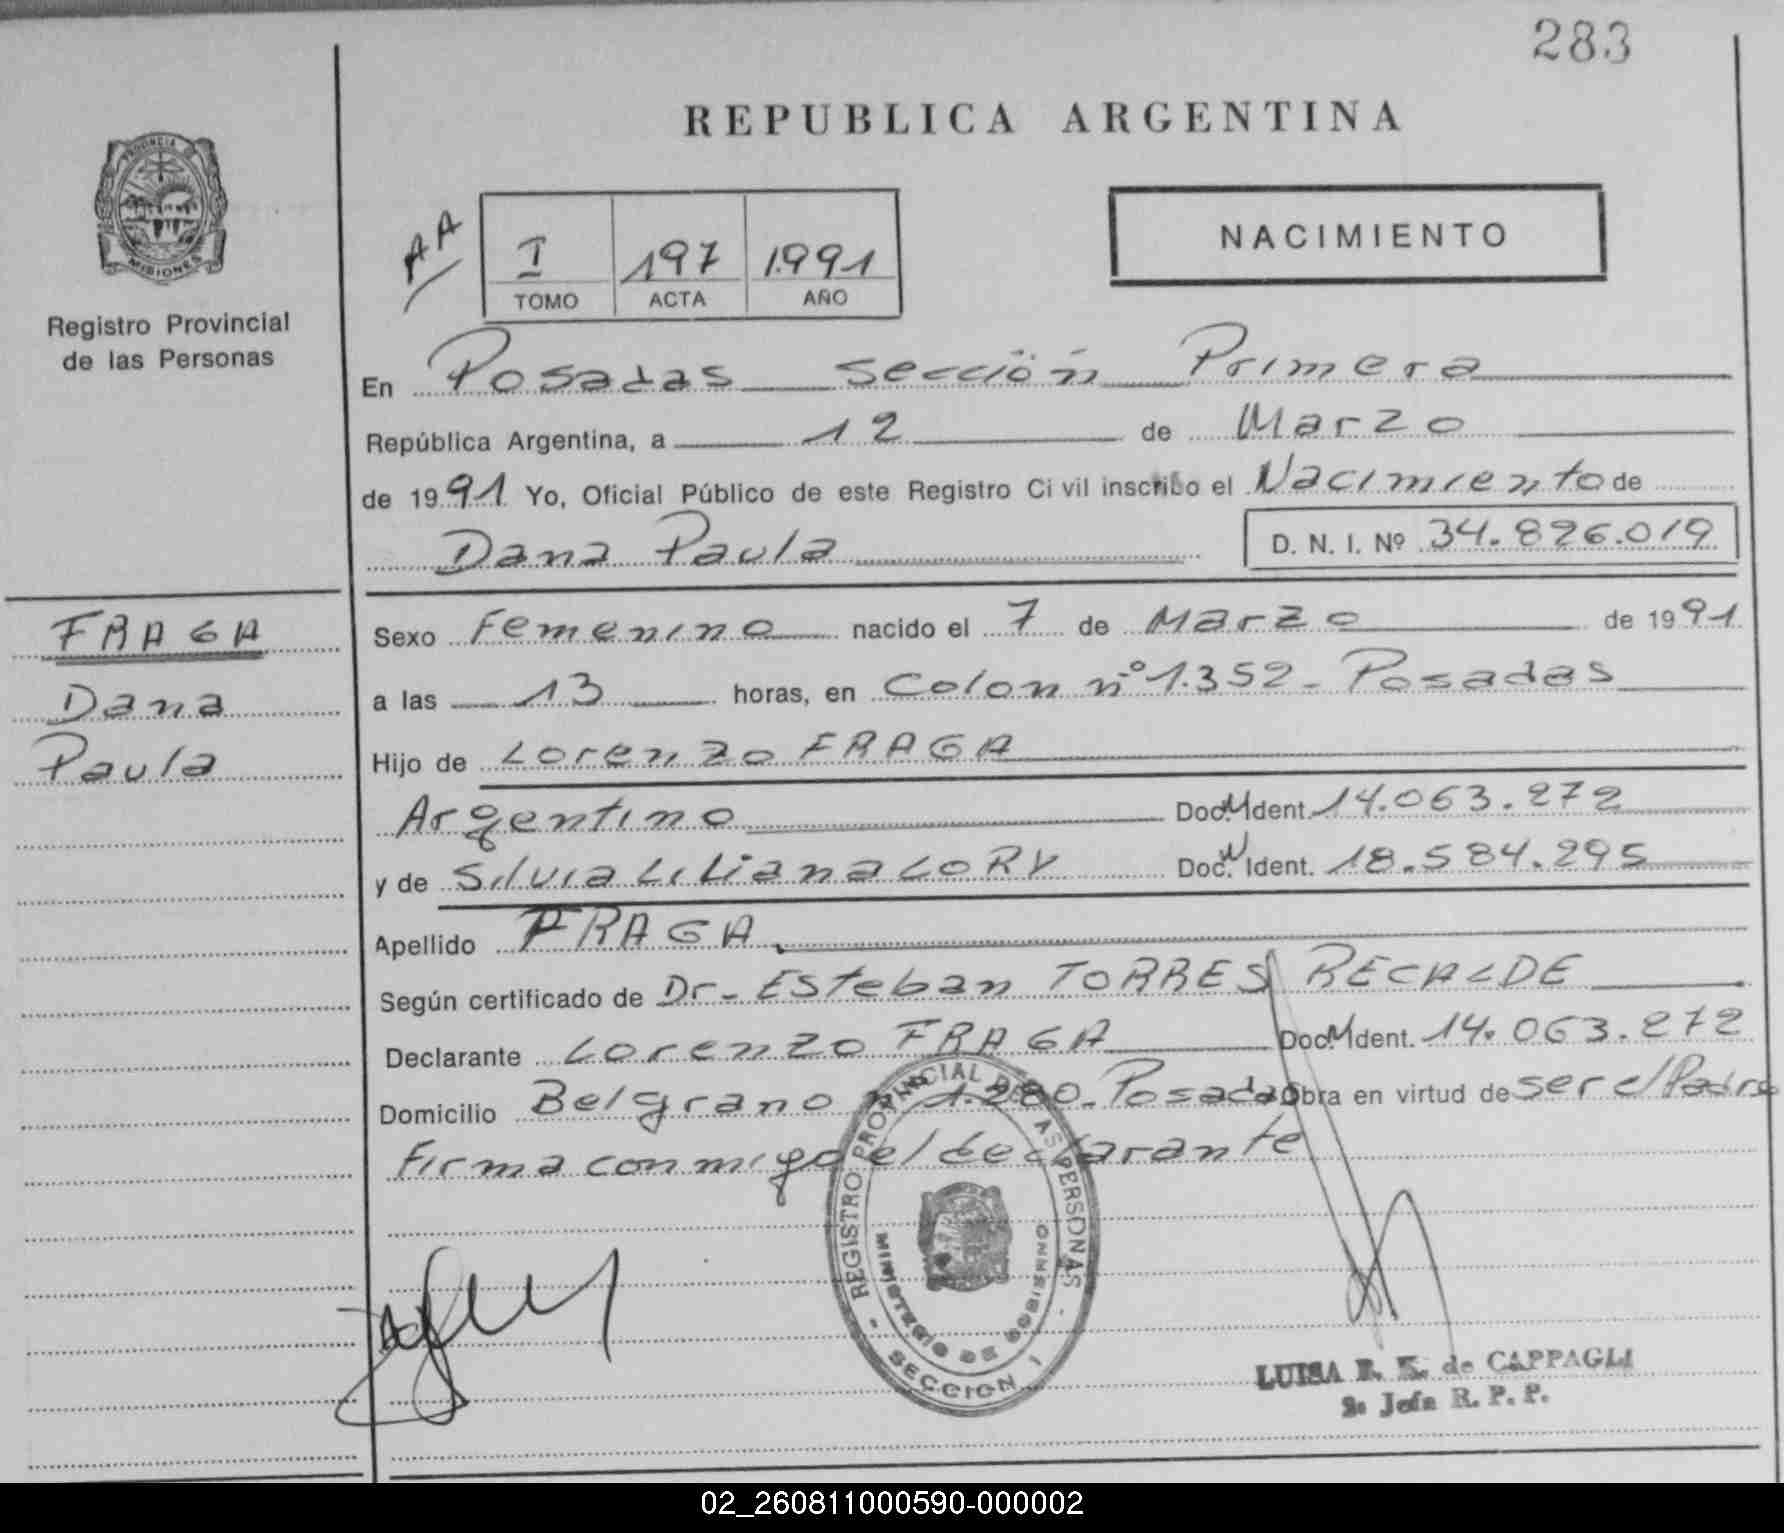 283
REPUBLICA ARGENTINA
PROVINCIA DE
MISIONES
Registro Provincial
de las Personas
AA
I 197 1.991
TOMO ACTA AÑO
NACIMIENTO
En Posadas sección Primera
República Argentina, a 12 de Marzo
de 1991 Yo, Oficial Público de este Registro Civil inscribo el Nacimiento de
Dana Paula D. N. I. Nº 34.896.019
FRAGA
Dana
Paula
Sexo Femenino nacido el 7 de Marzo de 1991
a las 13 horas, en Colon nº 1.352 - Posadas
Hijo de Lorenzo FRAGA
Argentino Doc. M Ident. 14.063.272
y de Silvia Liliana LORY Doc. N Ident. 18.584.295
Apellido FRAGA.
Según certificado de Dr. Esteban TORRES RECALDE
Declarante Lorenzo FRAGA Doc. M Ident. 14.063.272
Domicilio Belgrano nº 1.280 - Posadas Obra en virtud de ser el Padre
Firma conmigo el declarante
REGISTRO PROVINCIAL DE LAS PERSONAS
MINISTERIO DE GOBIERNO
- SECCION I -
LUISA E. K. de CAPPAGLI
2º Jefa R. P. P.
02_260811000590-000002